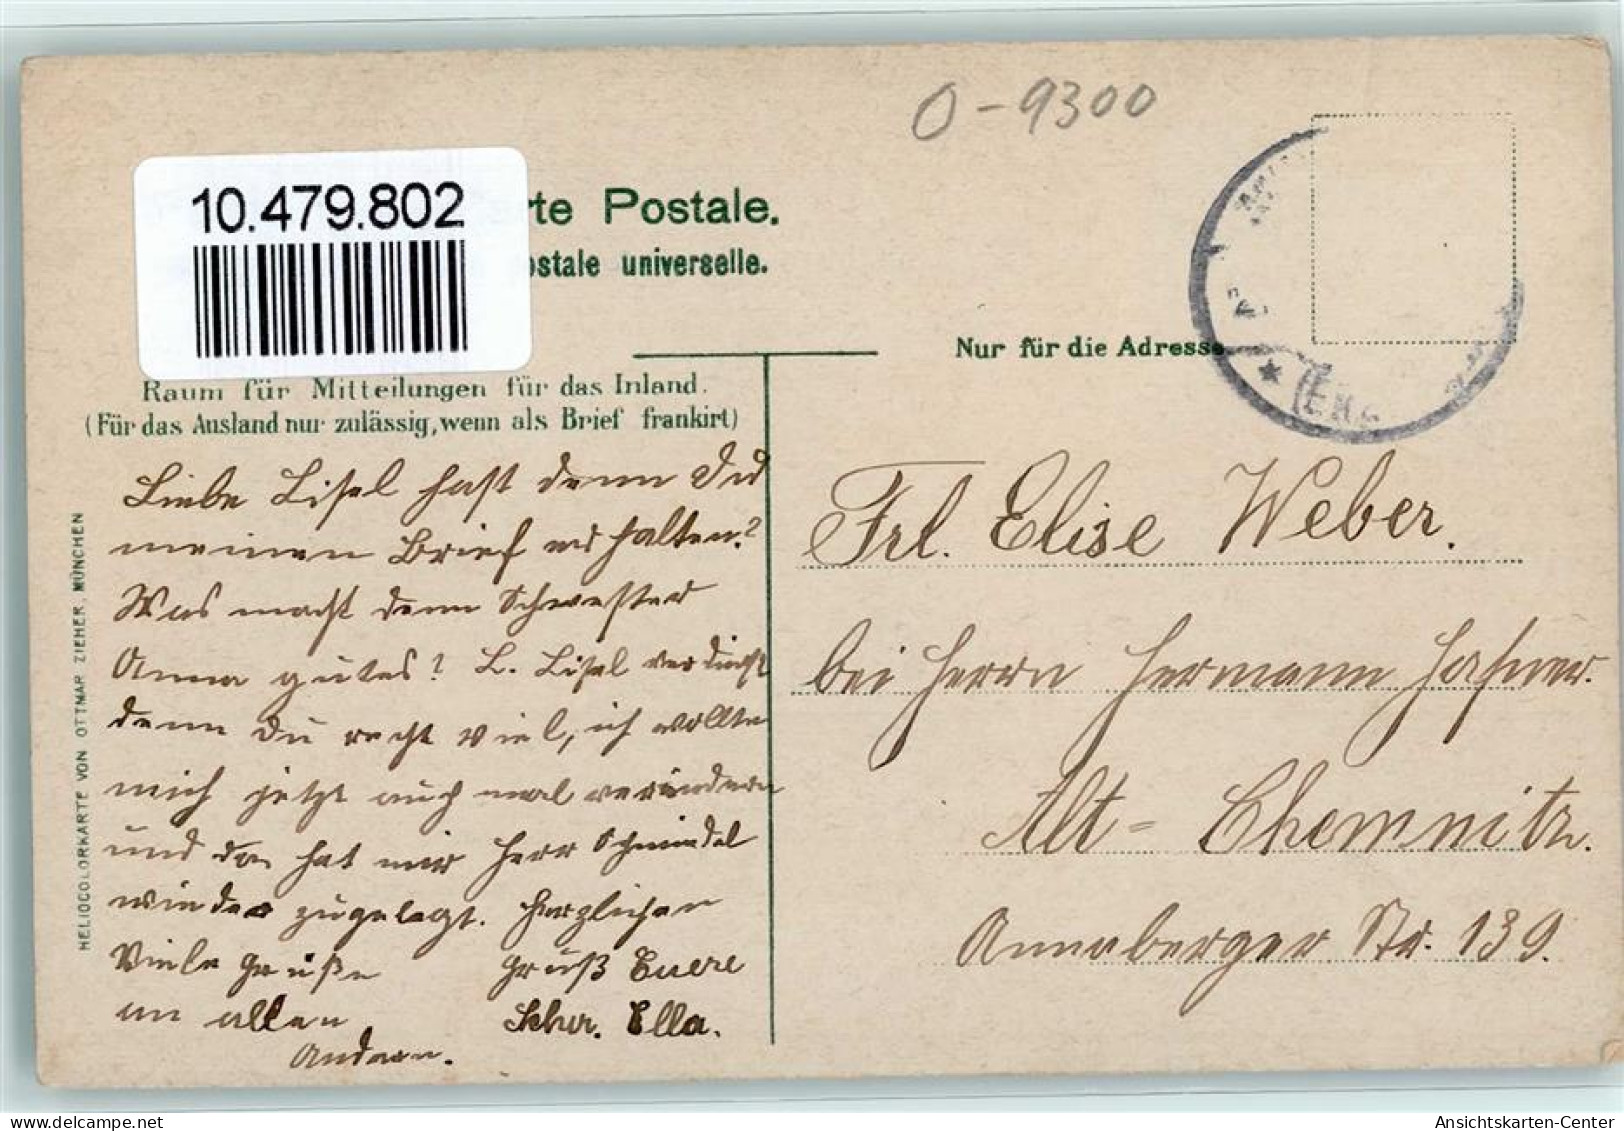 O-9300
10.479.802
rte Postale.
ostale universelle.
Nur für die Adresse
Raum für Mitteilungen für das Inland.
(Für das Ausland nur zulässig, wenn als Brief frankirt)
HELIOCOLORKARTE VON OTTMAR ZIEHER, MÜNCHEN
Liebe Lisel hast denn Du
meinen Brief erhalten?
Was macht denn Schwester
Anna gutes? L. Lisel verdienst
denn Du recht viel, ich wollte
mich jetzt auch mal verändern
und da hat mir Herr
wieder zugelegt. Herzlichen
Viele Grüße Gruß Euere
an allen Schw. Ella.
Andern.
Frl. Elise Weber.
bei Herrn Hermann
Alt-Chemnitz.
Annaberger Str. 139.
Ansichtskarten-Center